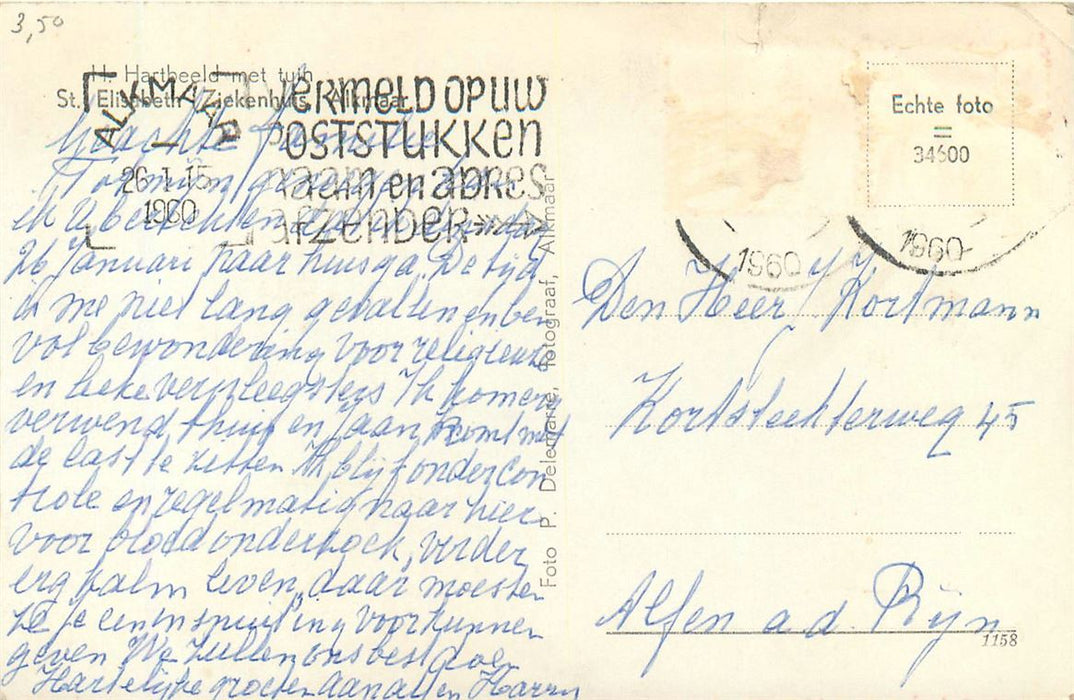 3,50
H. Hartbeeld met tuin
St. Elisabeth Ziekenhuis, Alkmaar
ALKMAAR
26.1.15
1960
VERMELD OP UW
POSTSTUKKEN
naam en ADRES
AFZENDER
26 Januari naar huis ga. De tijd
is me niet lang gevallen en ben
vol bewondering voor religieuze
en leke verpleegsters. Ik kom erg
verwend thuis en Jaan komt met
de last te zitten. Ik blijf onder con
trole en regelmatig naar hier
voor bloedonderzoek, verder
erg kalm leven, daar moesten
ze je een inspuiting voor kunnen
geven. We zullen ons best doen
Hartelijke groeten aan allen Harry
Foto P. Delemarre, fotograaf, Alkmaar
Echte foto
=
34600
1960
1960
Den Heer Kortmann
Kortsteekterweg 45
Alfen a.d. Rijn
1158